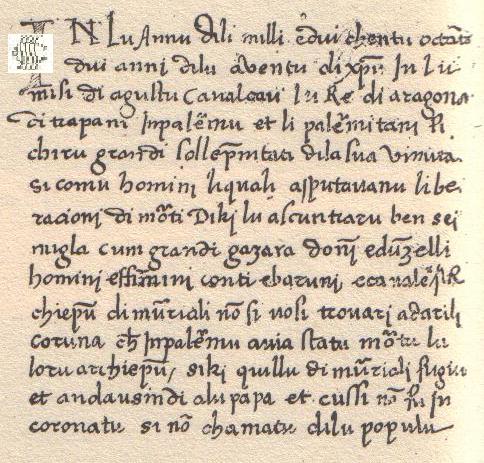 IN Lu Annu dili milli e dui chentu octāta
dui anni dilu aventu di xp̄u In Lu
misi di agustu Cavalcau lu Re di aragona
di trapani Inpalēmu et li palēmitani li
chiru grandi sollēpnitati dila sua vinuta
si comu homini liquali asputavanu libe
racioni di mōti Diki lu ascuntraru ben sei
migla cum grandi gazara donni e dunzelli
homini et fimmini conti e baruni e cavalēri lR
chiepū di mūriali nō si vosi trovari adarili
coruna ch̄ Inpalēmu avia statu mōtu lu
loru archiepū, siki quillu di mūriali fugiu
et andausindi alu papa et cussi nō fu in
coronatu si nō chamatu dilu populu